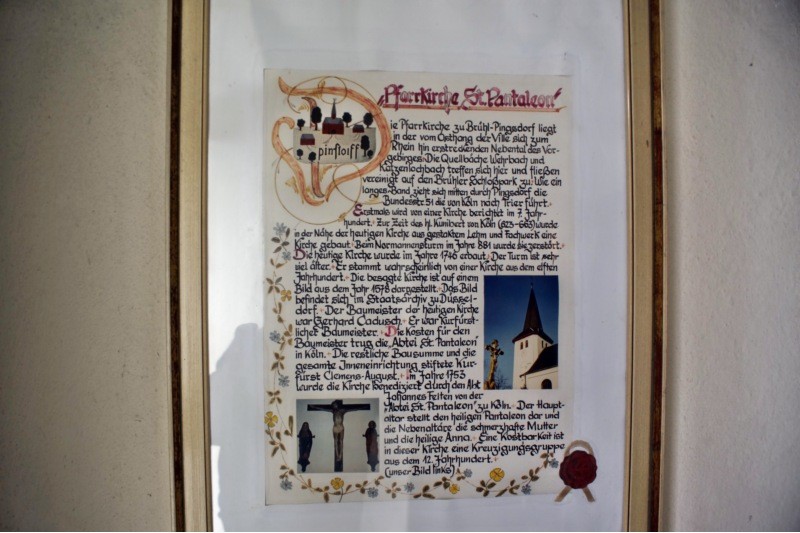 „Pfarrkirche St. Pantaleon"
pinstorff
Die Pfarrkirche zu Brühl-Pingsdorf liegt
in der vom Osthang der Ville sich zum
Rhein hin erstreckenden Nebental des Vor-
gebirges. Die Quellbäche Wehrbach und
Katzenlochbach treffen sich hier und fließen
vereinigt auf den Brühler Schloßpark zu. Wie ein
langes Band zieht sich mitten durch Pingsdorf die
Bundesstr. 51 die von Köln nach Trier führt.
Erstmals wird von einer Kirche berichtet im 7. Jahr-
hundert. Zur Zeit des hl. Kunibert von Köln (623-663) wurde
in der Nähe der heutigen Kirche aus gestaktem Lehm und Fachwerk eine
Kirche gebaut. Beim Normannensturm im Jahre 881 wurde sie zerstört.
Die heutige Kirche wurde im Jahre 1746 erbaut. Der Turm ist sehr
viel älter. Er stammt wahrscheinlich von einer Kirche aus dem elften
Jahrhundert. Die besagte Kirche ist auf einem
Bild aus dem Jahr 1578 dargestellt. Das Bild
befindet sich im Staatsarchiv zu Düssel-
dorf. Der Baumeister der heutigen Kirche
war Gerhard Cadusch. Er war Kurfürst-
licher Baumeister. Die Kosten für den
Baumeister trug die „Abtei St. Pantaleon"
in Köln. Die restliche Bausumme und die
gesamte Inneneinrichtung stiftete Kur-
fürst Clemens-August. Im Jahre 1753
wurde die Kirche benediziert durch den Abt
Johannes Felten von der
„Abtei St. Pantaleon" zu Köln. Der Haupt-
altar stellt den heiligen Pantaleon dar und
die Nebenaltäre die schmerzhafte Mutter
und die heilige Anna. Eine Kostbarkeit ist
in dieser Kirche eine Kreuzigungsgruppe
aus dem 12. Jahrhundert.
(unser Bild links)